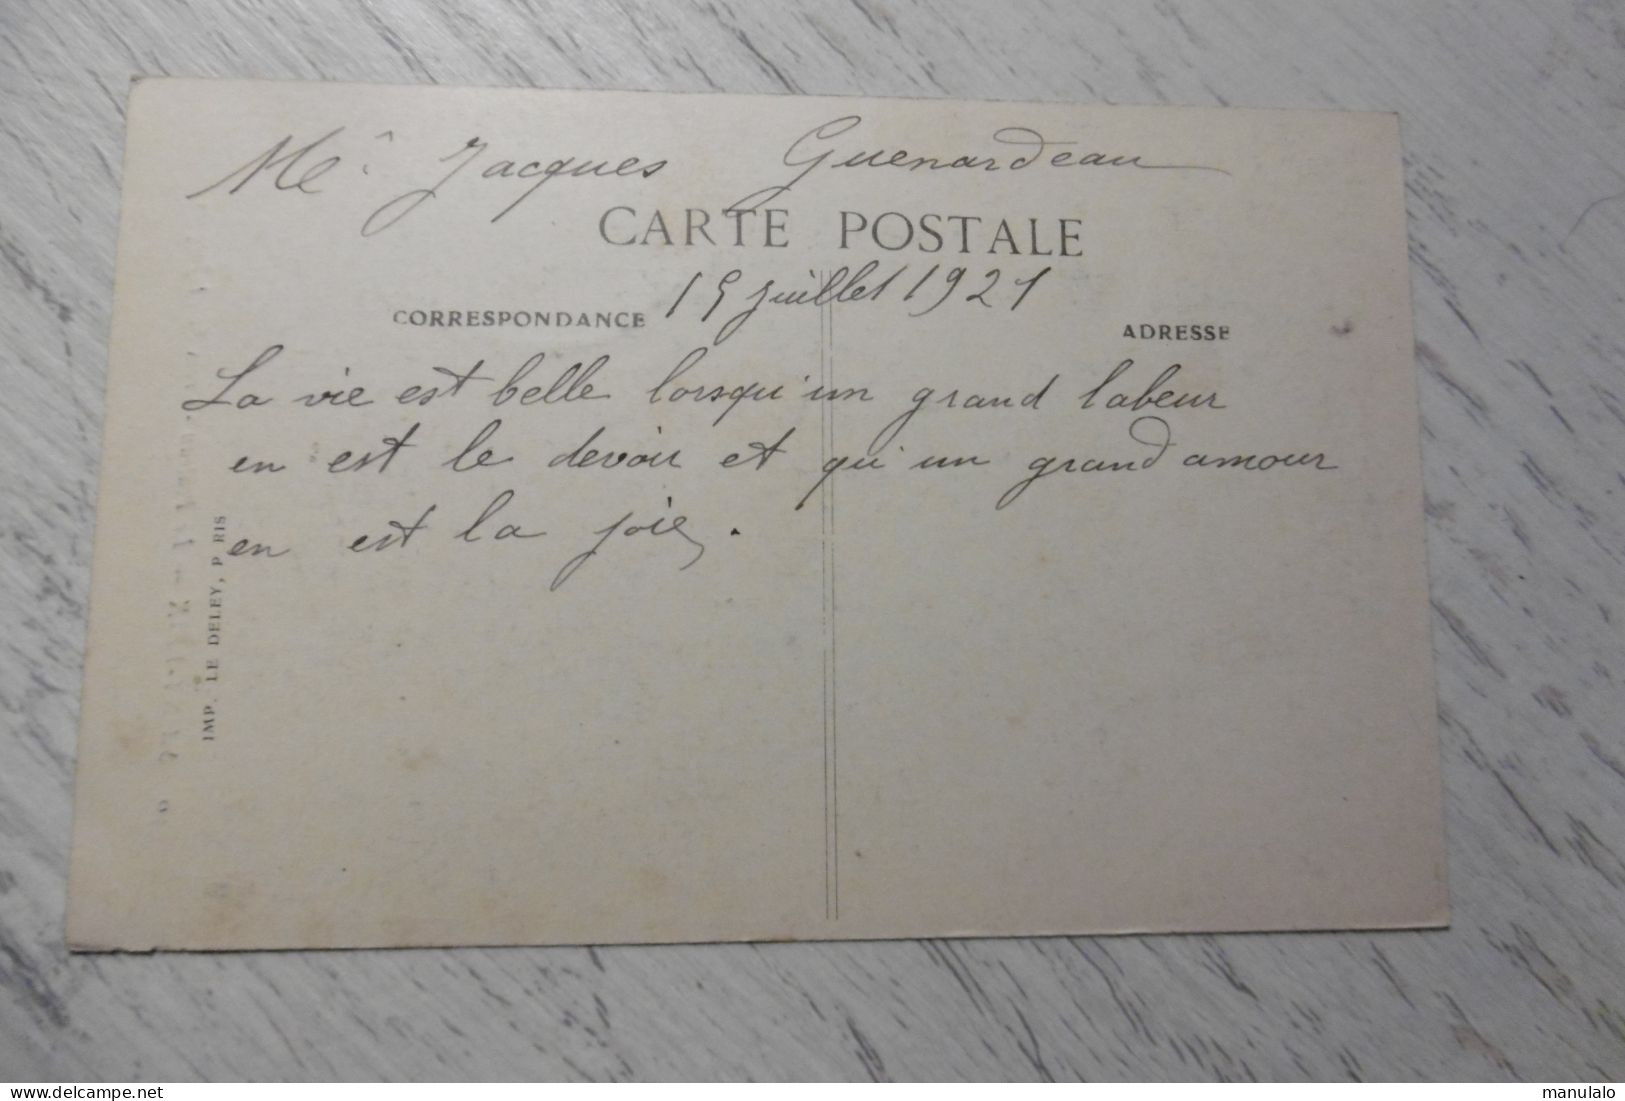 Mr Jacques Guenardeau
CARTE POSTALE
15 juillet 1921
CORRESPONDANCE
ADRESSE
La vie est belle lorsqu'un grand labeur
en est le devoir et qu'un grand amour
en est la joie.
IMP. LE DELEY, P RIS
www.delcampe.net
manulalo